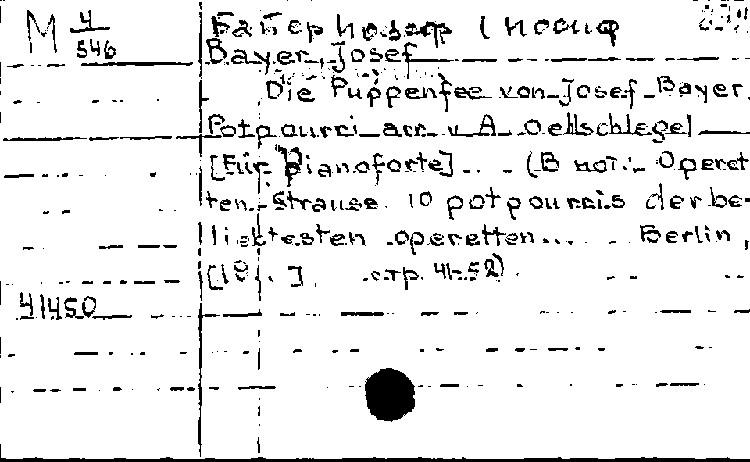 M 4/546
Байер Йозеф (Иосиф
Bayer, Josef
Die Puppenfee von Josef Bayer.
Potpourri arr. v A. Oellschlegel
[Für Pianoforte]... - (В нот.: Operet
ten-Strausse. 10 potpourris der be-
liebtesten operetten... Berlin,
[18..]. стр. 41-52).
41450